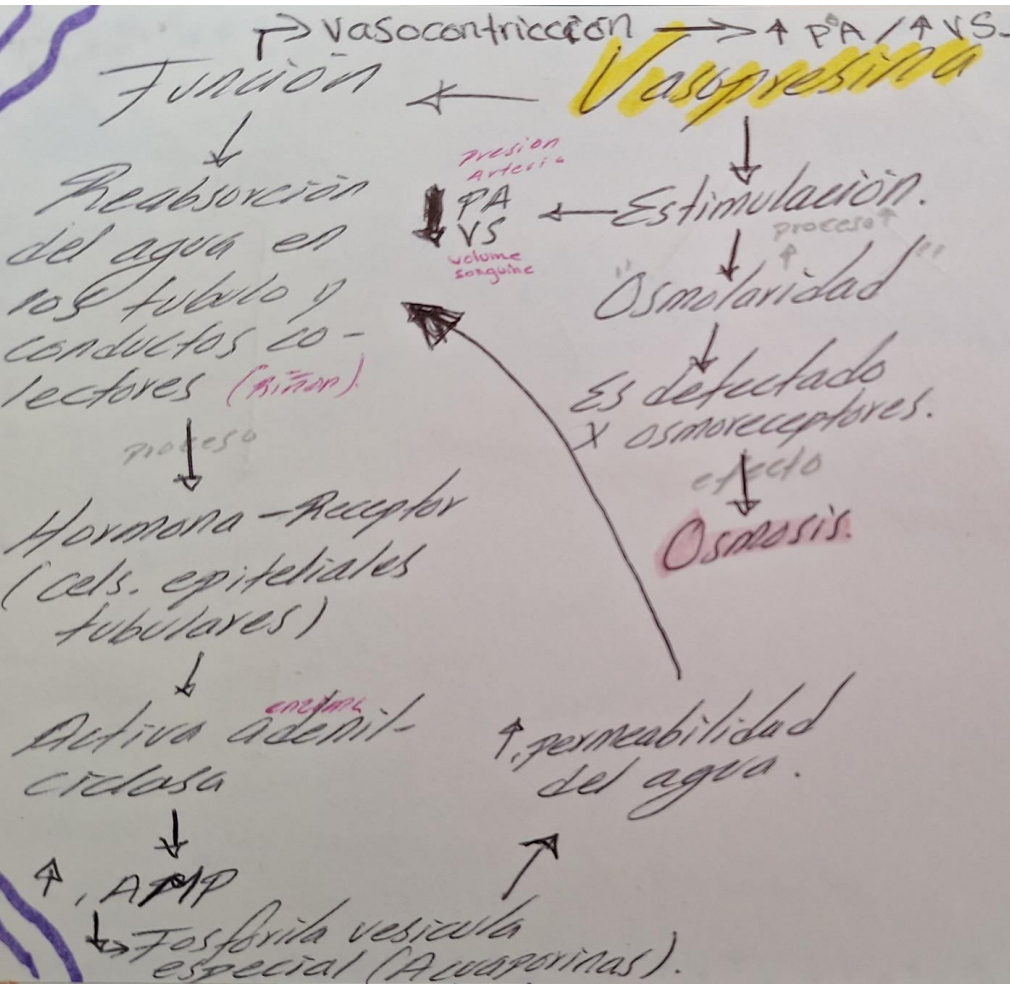 vasocontricción → ↑ PA / ↑ VS.
Función ← Vasopresina
Reabsorción
del agua en
los tubulo y
conductos co-
lectores (Riñon).
proceso
Hormona - Receptor
(cels. epiteliales
tubulares)
enzima
Activa adenil-
ciclasa
↑, AMP
Fosforila vesicula
especial (Acuaporinas).
↑, permeabilidad
del agua.
presion
Arteria
↓ PA
VS
volume
sanguine
Estimulación.
proceso ↑
↑
"Osmolaridad"
Es detectado
X osmoreceptores.
efecto
Osmosis.